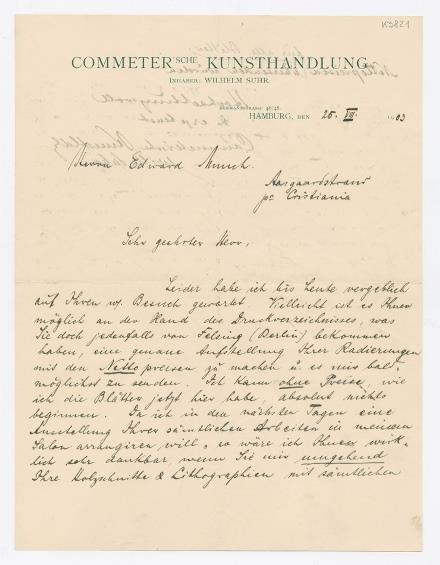 K3821
COMMETER'SCHE KUNSTHANDLUNG
INHABER: WILHELM SUHR.
HERMANNSTRASSE 46/48.
HAMBURG, DEN 25. VII. 1903
Herrn Edward Munch.
Aasgaardstrand
pr Cristiania
Sehr geehrter Herr,
Leider habe ich bis heute vergeblich
auf Ihren w. Besuch gewartet. Vielleicht ist es Ihnen
möglich an der Hand des Druckverzeichnisses, was
Sie doch jedenfalls von Felsing (Berlin) bekommen
haben, eine genaue Aufstellung Ihrer Radierungen
mit den Netto preisen zu machen u. es mir bald-
möglichst zu senden. Ich kann ohne Preise, wie
ich die Blätter jetzt hier habe, absolut nichts
beginnen. Da ich in den nächsten Tagen eine
Ausstellung Ihrer sämtlichen Arbeiten in meinem
Salon arrangiren will, so wäre ich Ihnen wirk-
lich sehr dankbar, wenn Sie mir umgehend
Ihre Holzschnitte & Lithographien mit sämtlichen